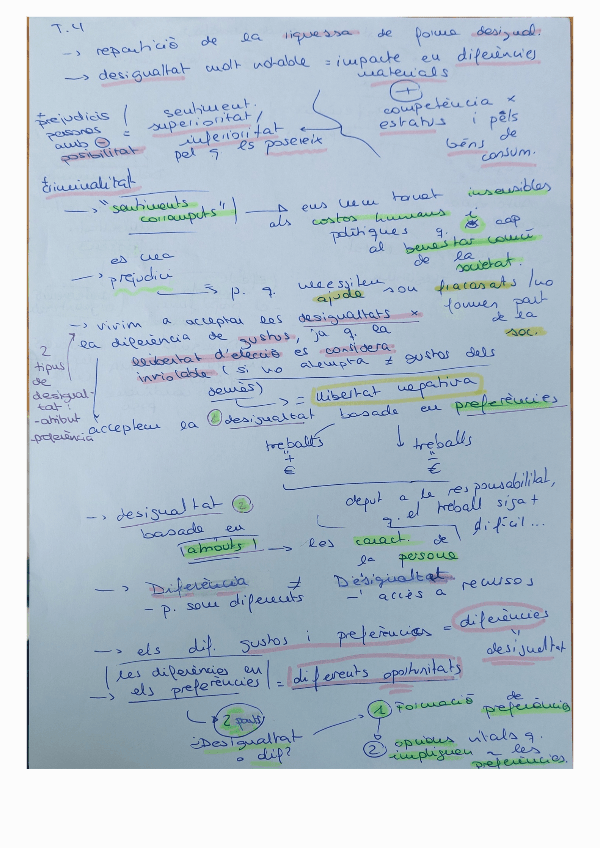 T.4
-> repartició de la riquessa de forma desigual.
-> desigualtat molt notable = impacte en diferències
materials
+
competència x
estratus i pels
béns de
consum.
+ prejudicis
persones
amb -
posibilitat
=
sentiment.
superioritat/
inferioritat
pel q es poseeix
+ criminalitat
-> "sentiments
corromputs"
-> ens hem tornat insensibles
als costos humans i
polítiques q. cap
al benestar comú
de la
societat.
-> es crea
prejudici
-> p. q. necessiten
ajuda son fracasats /no
formen part
de la
soc.
-> vivim a acceptar les desigualtats x
la diferència de gustos, ja q. la
llibertat d'elecció es considera
inviolable (si no atempta ≠ gustos dels
demés)
-> = llibertat negativa
2
tipus
de
desigual-
tat:
-atribut
-preferència
accepten la 1 desigualtat basade en preferències
treballs
+
€
treballs
-
€
degut a la responsabilitat,
q. el treball siga +
difícil...
-> desigualtat 2
basade en
atributs
-> les caract. de
la persona
-> Diferència ≠ Desigualtat
- p. som diferents
- accès a recursos
-> els dif. gustos i preferències = diferències
"
desigualtat
-> les diferències en
els preferències
= diferents oportunitats
-> 2 parts
¿Desigualtat
o dif?
-> 1 Formació de
preferències
2 opcions vitals q.
impliquen ~ les
preferències.